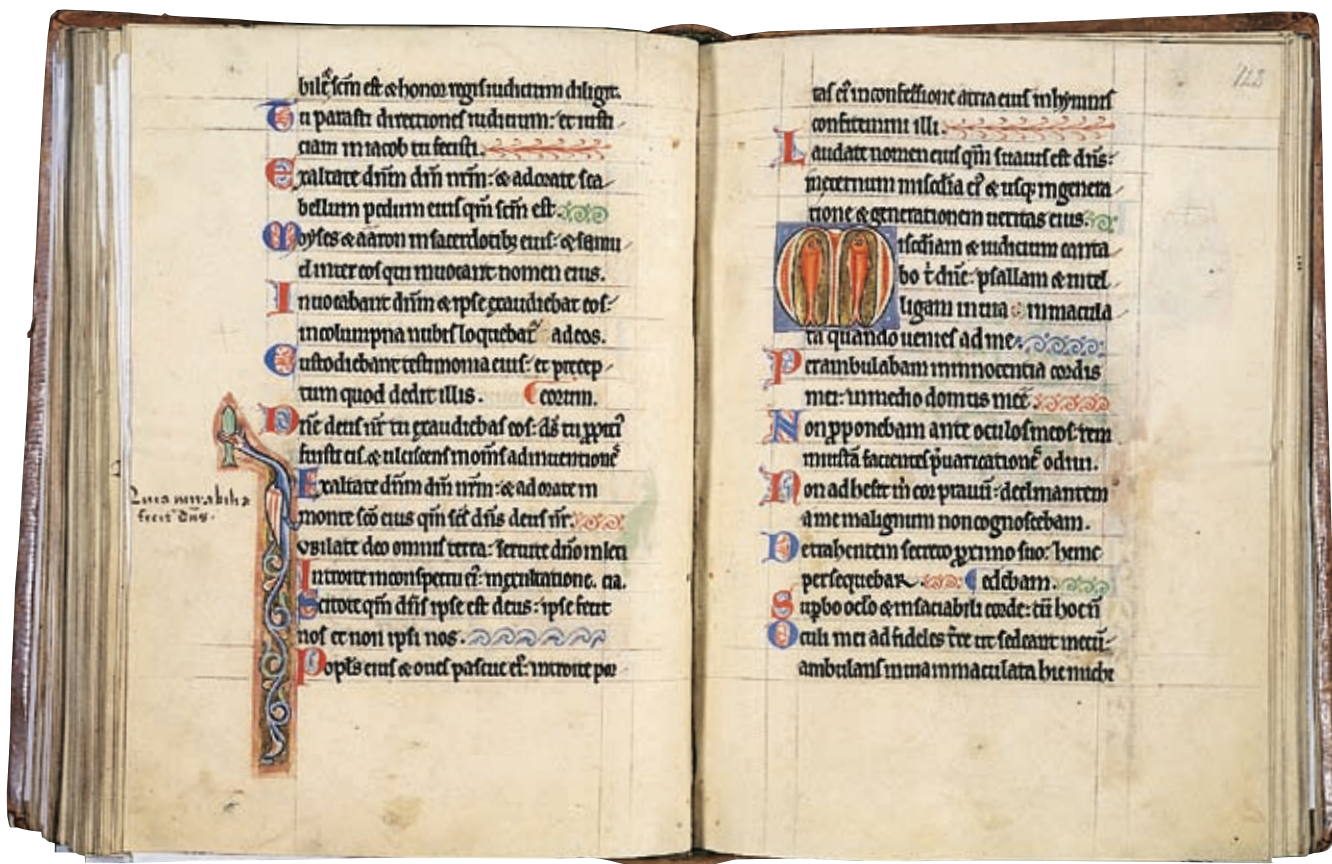 bilẽ scm̃ est & honor regis iudicium diligit.
Tu parasti directiones iudicium: et iusti
ciam in iacob tu fecisti.
Exaltate dñm dm̃ nrm̃: & adorate sca
bellum pedum eius qm̃ scm̃ est.
Moyses & aaron in sacerdotibȝ eius: & samu
el inter eos qui inuocant nomen eius.
Inuocabant dñm & ipse exaudiebat eos:
in columpna nubis loquebat̃ ad eos.
Custodiebant testimonia eius: et precep
tum quod dedit illis.
Dñe deus nr̃ tu exaudiebas eos: ds̃ tu ꝓpici᷑
fuisti eis. & ulciscens in om̃s adinuentionẽ
eorum.
Exaltate dñm dm̃ nrm̃: & adorate in
monte scõ eius qm̃ scs̃ dñs deus nr̃.
Quia mirabilia
fecit dñs.
Iubilate deo omnis terra: seruite dño in leti
Introite in conspectu ei᷑: in exultatione. cia.
Scitote qm̃ dñs ipse est deus: ipse fecit
nos et non ipsi nos.
Popl̃s eius & oues pascue ei᷑: introite por
113
tas ei᷑ in confessione atria eius in hymnis
confitemini illi.
Laudate nomen eius qm̃ suauis est dñs:
in eternum mis̃dia ei᷑ & usqȝ in genera
tione & generationem ueritas eius.
Mis̃cdiam & iudicium canta
bo t̃ dñe: psallam & intel
ligam in uia inmacula
ta quando uenies ad me.
Perambulabam in innocentia cordis
mei: in medio domus meẽ.
Non ꝓponebam ante oculos meos rem
iniustã facientes p̃uaricationẽ odiui.
Non adhesit m̃ cor prauũ: declinantem
a me malignum non cognoscebam.
Detrahentem secreto ꝓximo suo: hunc
persequebar.
Supbo oclõ & insaciabili corde: cũ hoc ñ
edebam.
Oculi mei ad fideles tr̃e ut sedeant mecũ:
ambulans in uia inmaculata hic michi